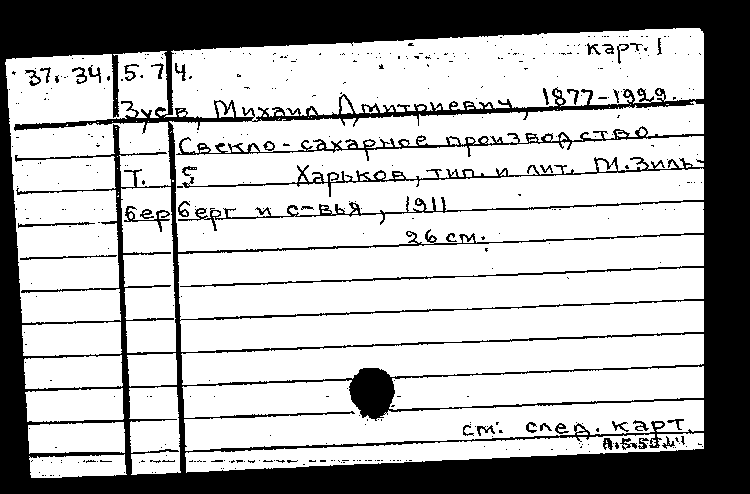 карт. 1
37. 34. 5. 7 4.
Зуев, Михаил Дмитриевич, 1877-1929.
Свекло-сахарное производство.
Т. 5 Харьков, тип. и лит. М. Зиль-
бер берг и с-вья, 1911
26 см.
см. след. карт.